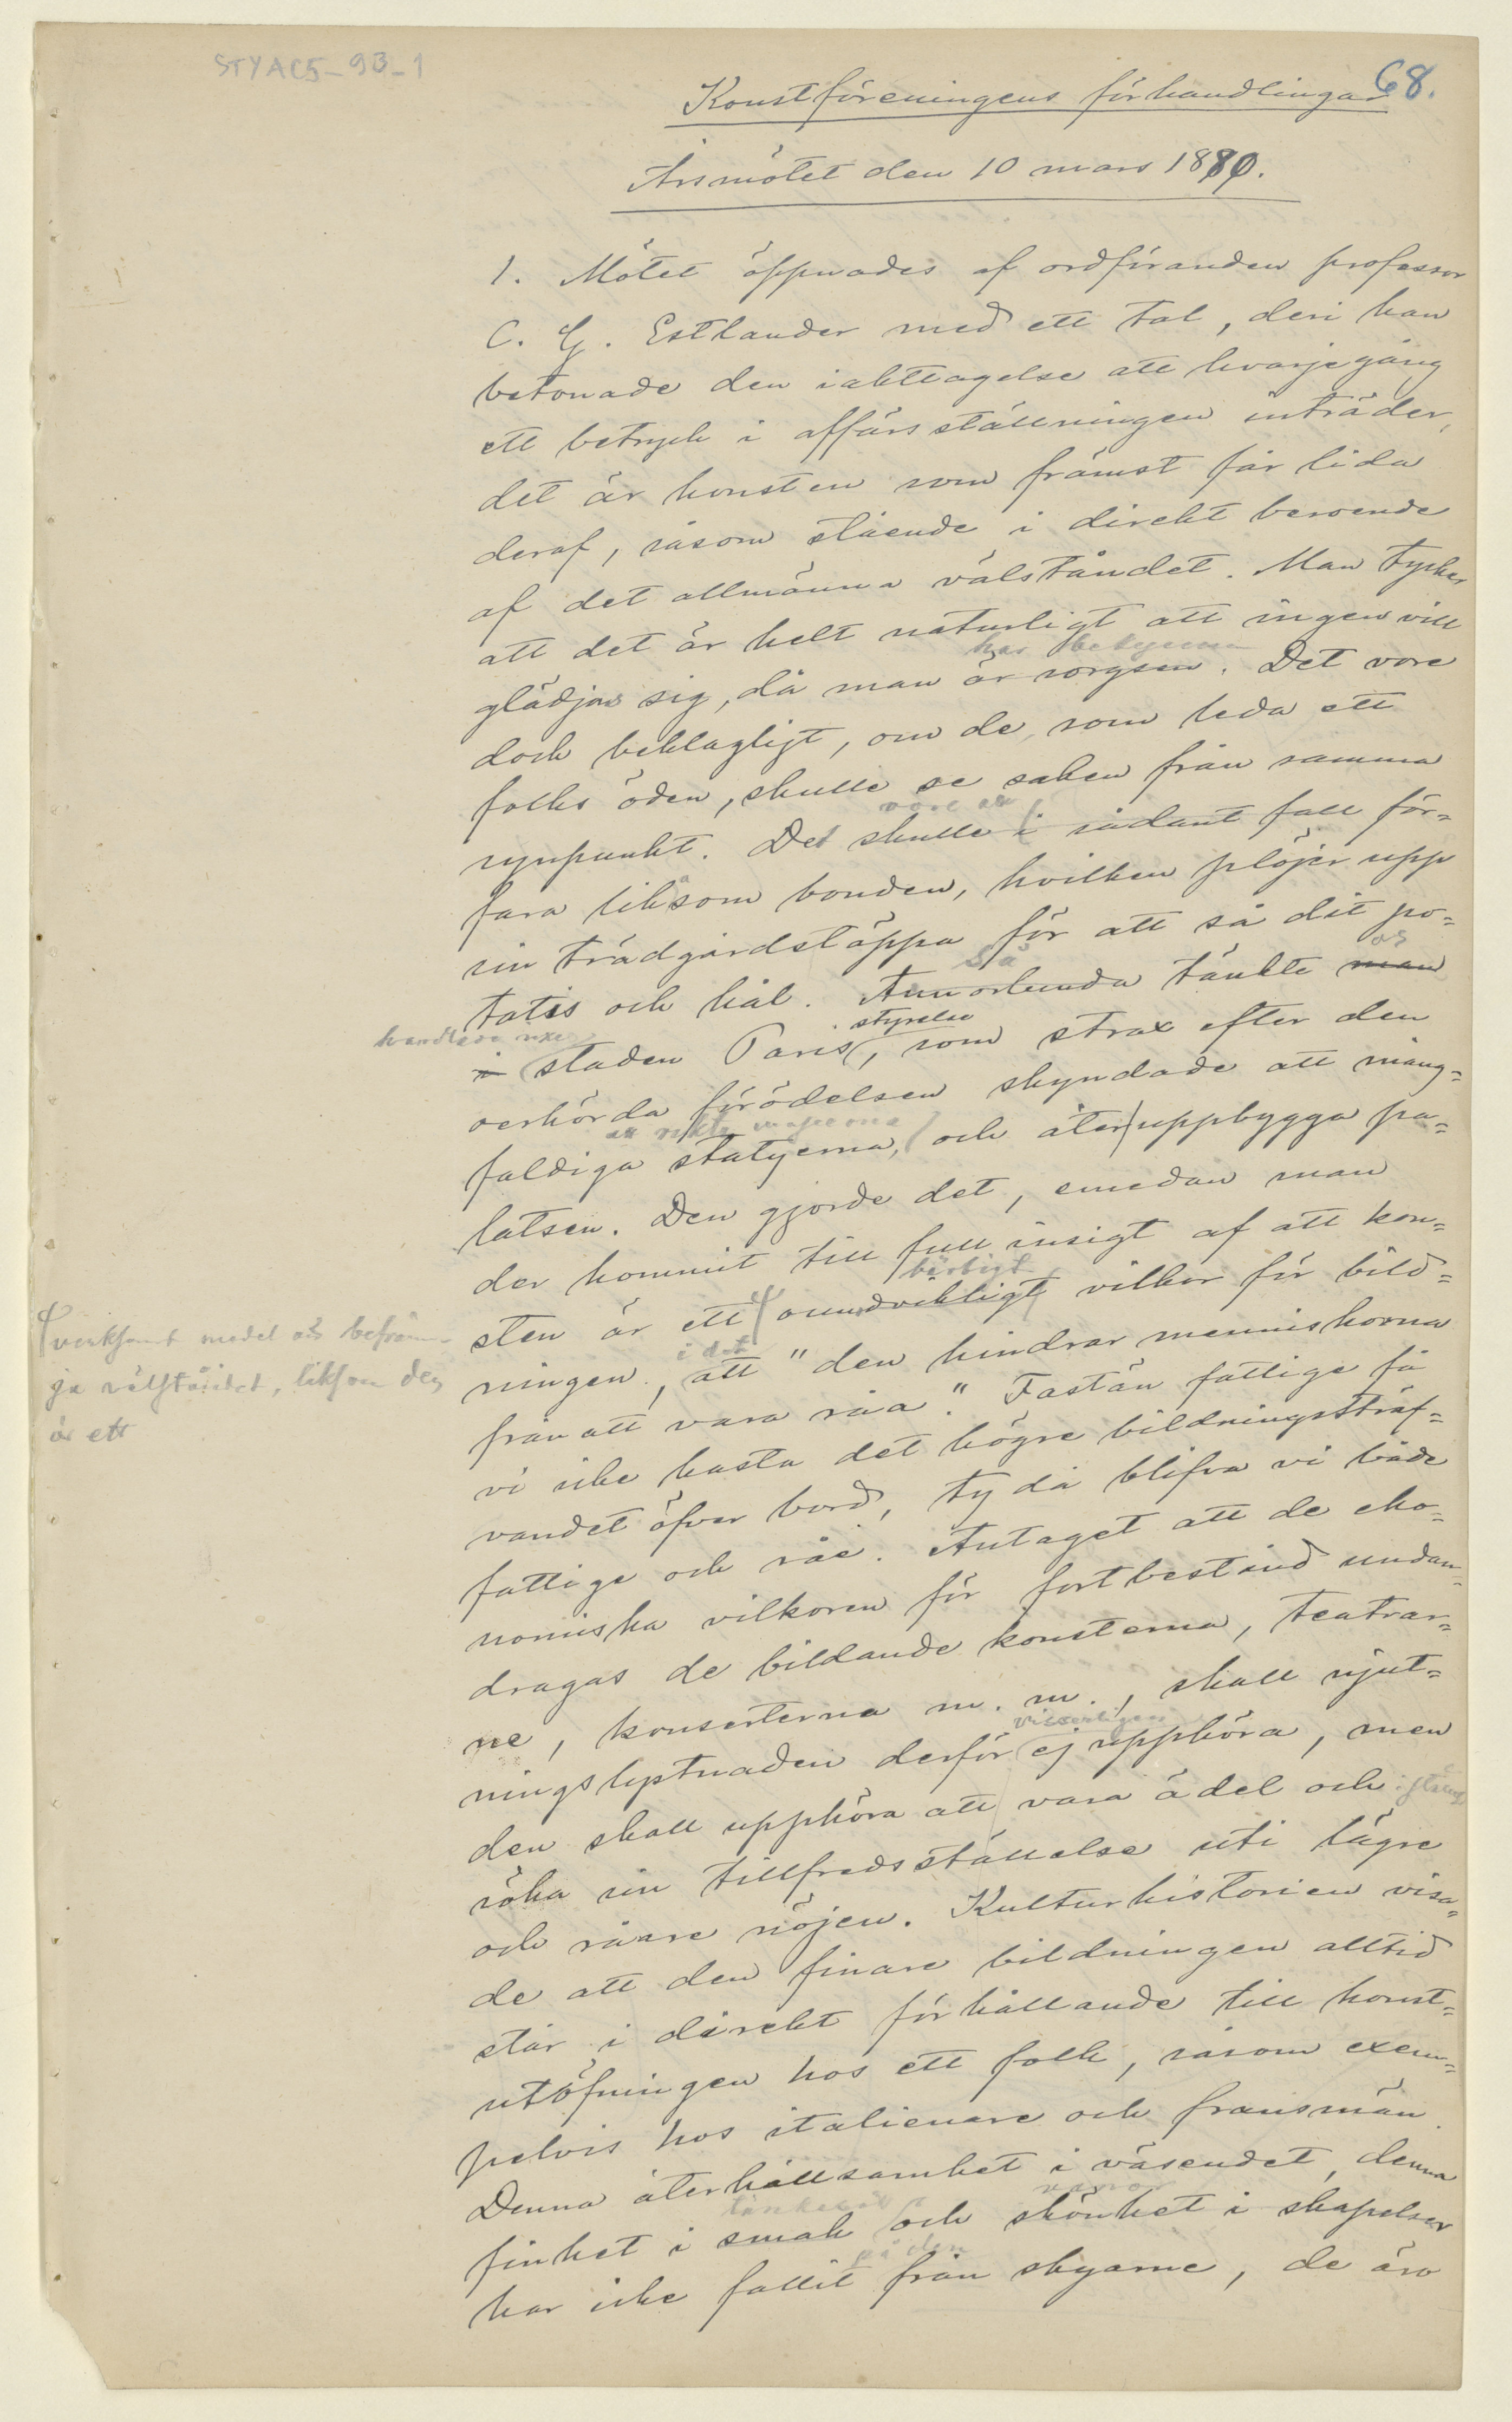 STYAC5-93-1
68.
Konstföreningens förhandlingar
Årsmötet den 10 mars 1880.
1. Mötet öppnades af ordföranden professor
C. G. Estlander med ett tal, deri han
betonade den iakttagelse att hvarje gång
ett betryck i affärsställningen inträder,
det är konsten som främst får lida
deraf, såsom stående i direkt beroende
af det allmänna välståndet. Man tycker
att det är helt naturligt att ingen vill
har bekymmer
glädja sig, då man är sorgsen. Det vore
dock beklagligt, om de, som leda ett
folks öden, skulle se saken från samma
vore att
synpunkt. Det skulle i sådant fall för-
fara liksom bonden, hvilken plöjer upp
sin trädgårdstäppa för att så dit po-
Så
tatis och kål. Annorlunda tänkte man
handlade icke
styrelse
i staden Paris, som strax efter den
oerhörda förödelsen skyndade att mång-
faldiga statyerna, och återuppbygga pa-
latsen. Den gjorde det, emedan man
der kommit till full insigt af att kon-
sten är ett oundvikligt vilkor för bild-
verksamt medel att befräm-
ja välståndet, liksom den
är ett
i det
ningen, att "den hindrar menniskorna
från att vara råa". Fastän fattige få
vi icke kasta det högre bildningssträf-
vandet öfver bord, ty då blifva vi både
fattige och råe. Antaget att de eko-
nomiska vilkoren för fortbestånd undan-
dragas de bildande konsterna, teatrar-
ne, konserterna m. m., skall njut-
visserligen
ningslystnaden derför ej upphöra, men
den skall upphöra att vara ädel och i stället
söka sin tillfredsställelse uti lägre
och råare nöjen. Kulturhistorien visa-
de att den finare bildningen alltid
står i direkt förhållande till konst-
utöfningen hos ett folk, såsom exem-
pelvis hos italienare och fransmän.
Denna återhållsamhet i väsendet, denna
tänkesätt
finhet i smak och skönhet i skapelser
på dem
har icke fallit från skyarne, de äro